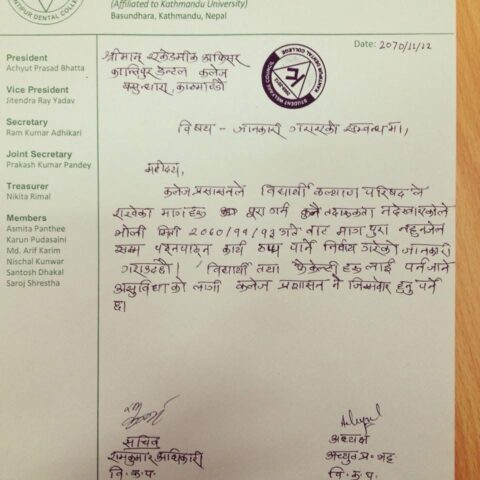 (Affiliated to Kathmandu University)
Basundhara, Kathmandu, Nepal
Date: 2070/11/12
President
Achyut Prasad Bhatta
Vice President
Jitendra Ray Yadav
Secretary
Ram Kumar Adhikari
Joint Secretary
Prakash Kumar Pandey
Treasurer
Nikita Rimal
Members
Asmita Panthee
Karun Pudasaini
Md. Arif Karim
Nischal Kunwar
Santosh Dhakal
Saroj Shrestha
श्रीमान् एकेडमीक अफिसर
कान्तिपुर डेन्टल कलेज
बसुन्धारा, काठमाडौं
STUDENT WELFARE COUNCIL
विषय - जानकारी गराएको सम्बन्धमा,
महोदय,
कलेज प्रशासनले विद्यार्थी कल्याण परिषद् ले
राखेका मागहरु पूरा गर्न कुनै तदारुकता नदेखाएकोले
भोली मिति २०७०/११/१३ गते बाट माग पुरा नहुन्जेल
सम्म पठनपाठन कार्य ठप्प पार्ने निर्णय गरेको जानकारी
गराउदछौं। विद्यार्थी तथा फ्याकेल्टी हरु लाई पर्न जाने
असुविधा को लागी कलेज प्रशासन नै जिम्मेवार हुनु पर्ने
छ।
सचिव
रामकुमार अधिकारी
वि. क. प.
अध्यक्ष
अच्युत प्र. भट्ट
वि. क. प.